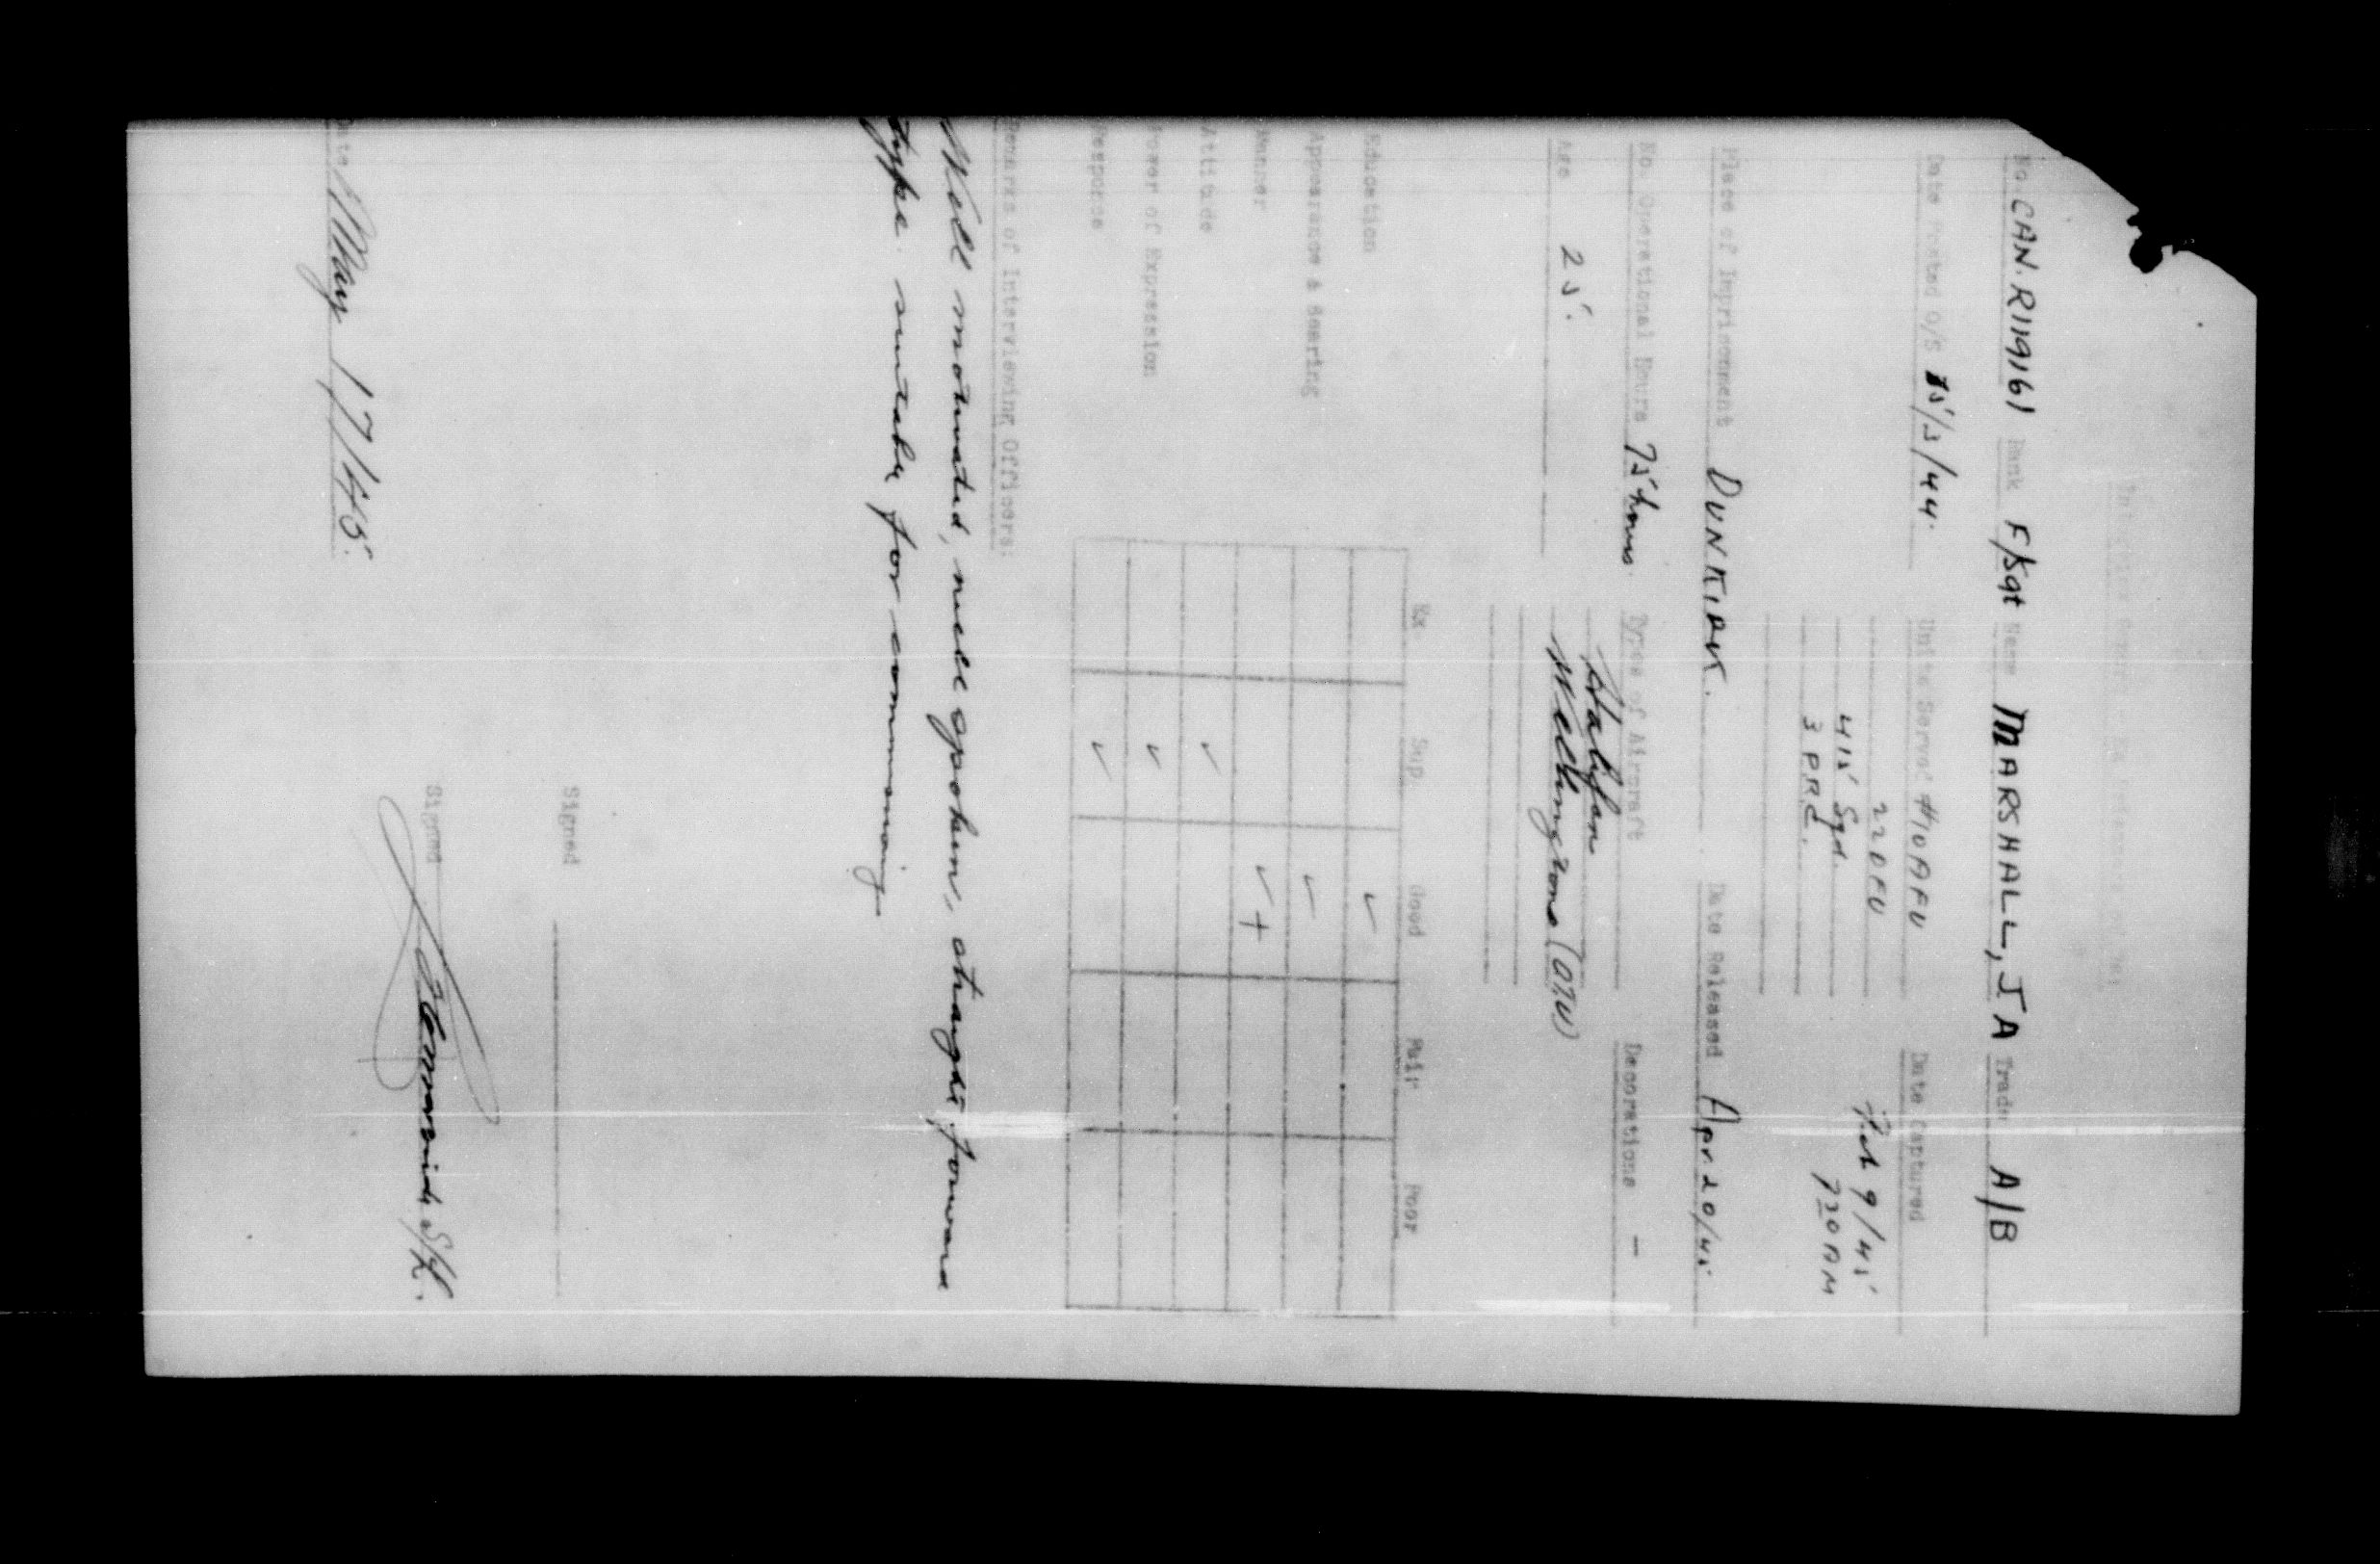 Interview Report -
No. CAN. R119161 Rank F/Sgt Name MARSHALL, J A Trade A/B
Date Posted O/S 15/3/44. Units Served #10 AFU Date Captured
22 OFU Feb 9/45
415 Sqd. 720 AM
3 P.R.C.
Place of Imprisonment DUNKIRK. Date Released Apr. 20/45
No. Operational Hours 75 hours. Types of Aircraft Decorations -
Halifax
Age 25. Wellingtons (OTU)
Ex Sup. Good Fair Poor
Education ✓
Appearance & Bearing ✓
Manner ✓+
Attitude ✓
Power of Expression ✓
Response ✓
Remarks of Interviewing Officers:
Well motivated, well spoken, straight forward
type suitable for commissioning
Signed
Signed S/L.
Date May 17/45.